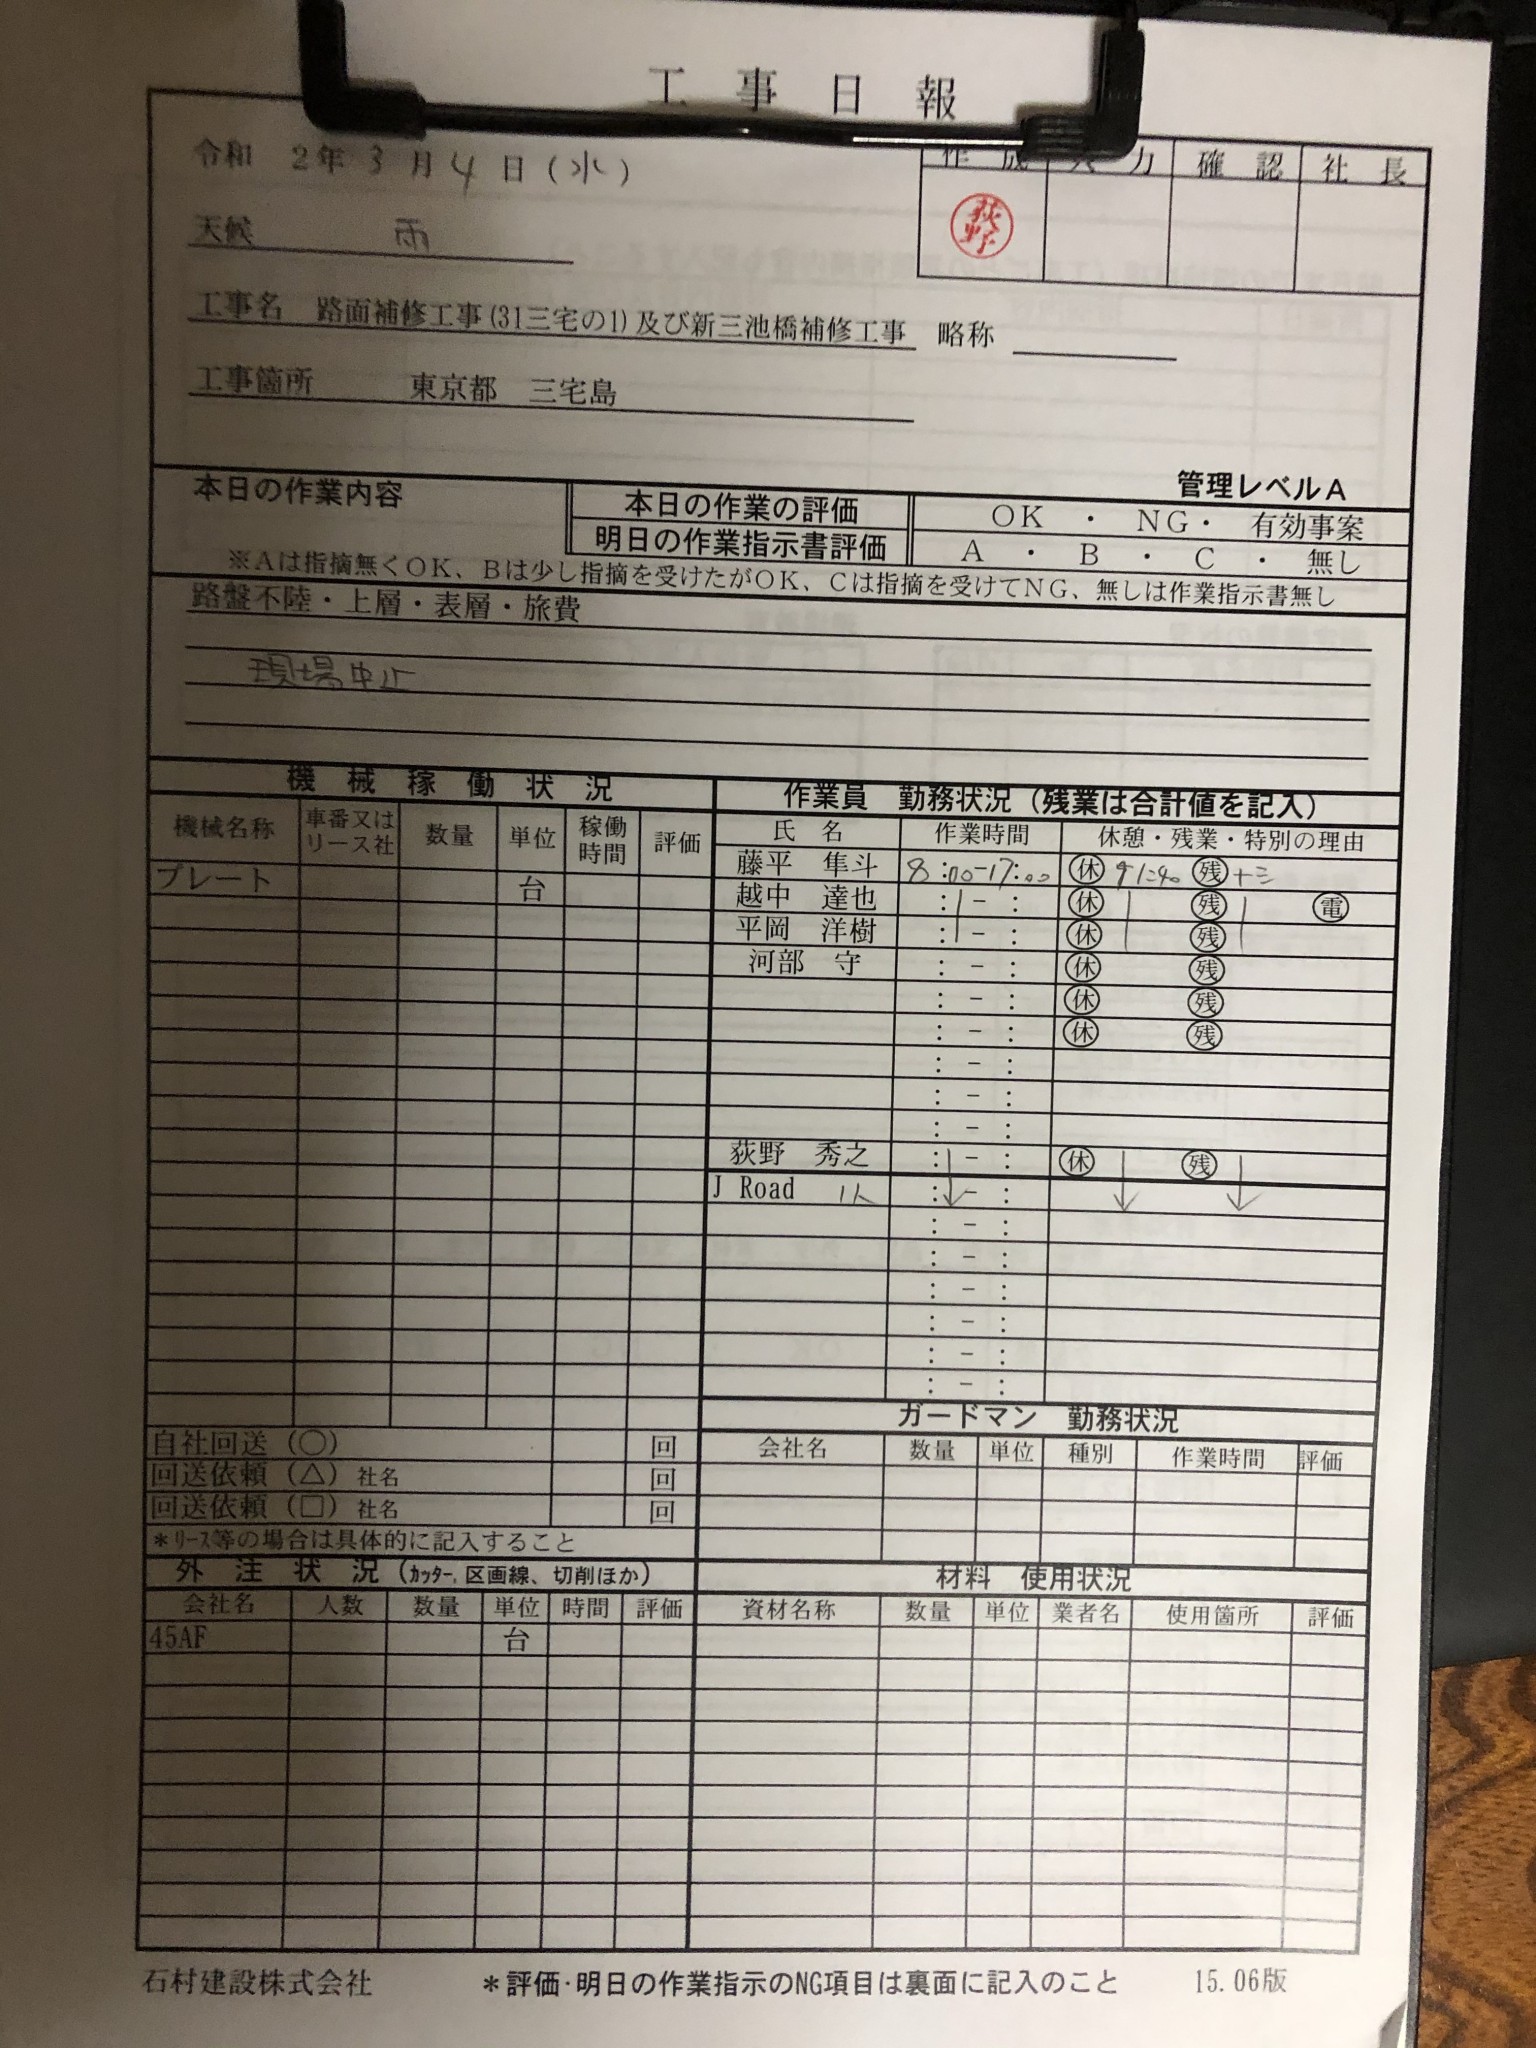 工事日報
令和 2年 3月 4日(水)
作成 入力 確認 社長
荻野
天候 雨
工事名 路面補修工事(31三宅の1)及び新三池橋補修工事 略称
工事箇所 東京都 三宅島
管理レベルA
本日の作業内容 本日の作業の評価 OK ・ NG・ 有効事案
明日の作業指示書評価 A ・ B ・ C ・ 無し
※Aは指摘無くOK、Bは少し指摘を受けたがOK、Cは指摘を受けてNG、無しは作業指示書無し
路盤不陸・上層・表層・旅費
現場中止
機械稼働状況
機械名称 車番又はリース社 数量 単位 稼働時間 評価
プレート 台
作業員 勤務状況(残業は合計値を記入)
氏名 作業時間 休憩・残業・特別の理由
藤平 隼斗 8:00-17:00 休 残
越中 達也 : - : 休 残 電
平岡 洋樹 : - : 休 残
河部 守 : - : 休 残
: - : 休 残
: - : 休 残
: - :
: - :
: - :
荻野 秀之 : - : 休 残
J Road 1人 : - :
: - :
: - :
: - :
: - :
: - :
: - :
自社回送(○) 回
回送依頼(△) 社名 回
回送依頼(□) 社名 回
*リース等の場合は具体的に記入すること
ガードマン 勤務状況
会社名 数量 単位 種別 作業時間 評価
外注状況(カッター,区画線、切削ほか)
会社名 人数 数量 単位 時間 評価
45AF 台
材料 使用状況
資材名称 数量 単位 業者名 使用箇所 評価
石村建設株式会社 *評価・明日の作業指示のNG項目は裏面に記入のこと 15.06版